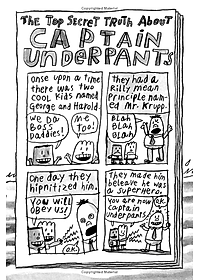 The Top Secret Truth About
CAPTAIN
UNDERPANTS
once upon a time
there was two
COOL KIDS named
George and Harold.
We Do
Boss
Daddies!
Me
too!
they had a
Rilly mean
Principle nam-
ed Mr. Krupp.
BLAH
BLAH
BLAH
One day they
hipnitized him.
You will
Obey us!
O.K.
They made him
beleave he was
a superhero.
You are now
Captain
underpants!
O.K.